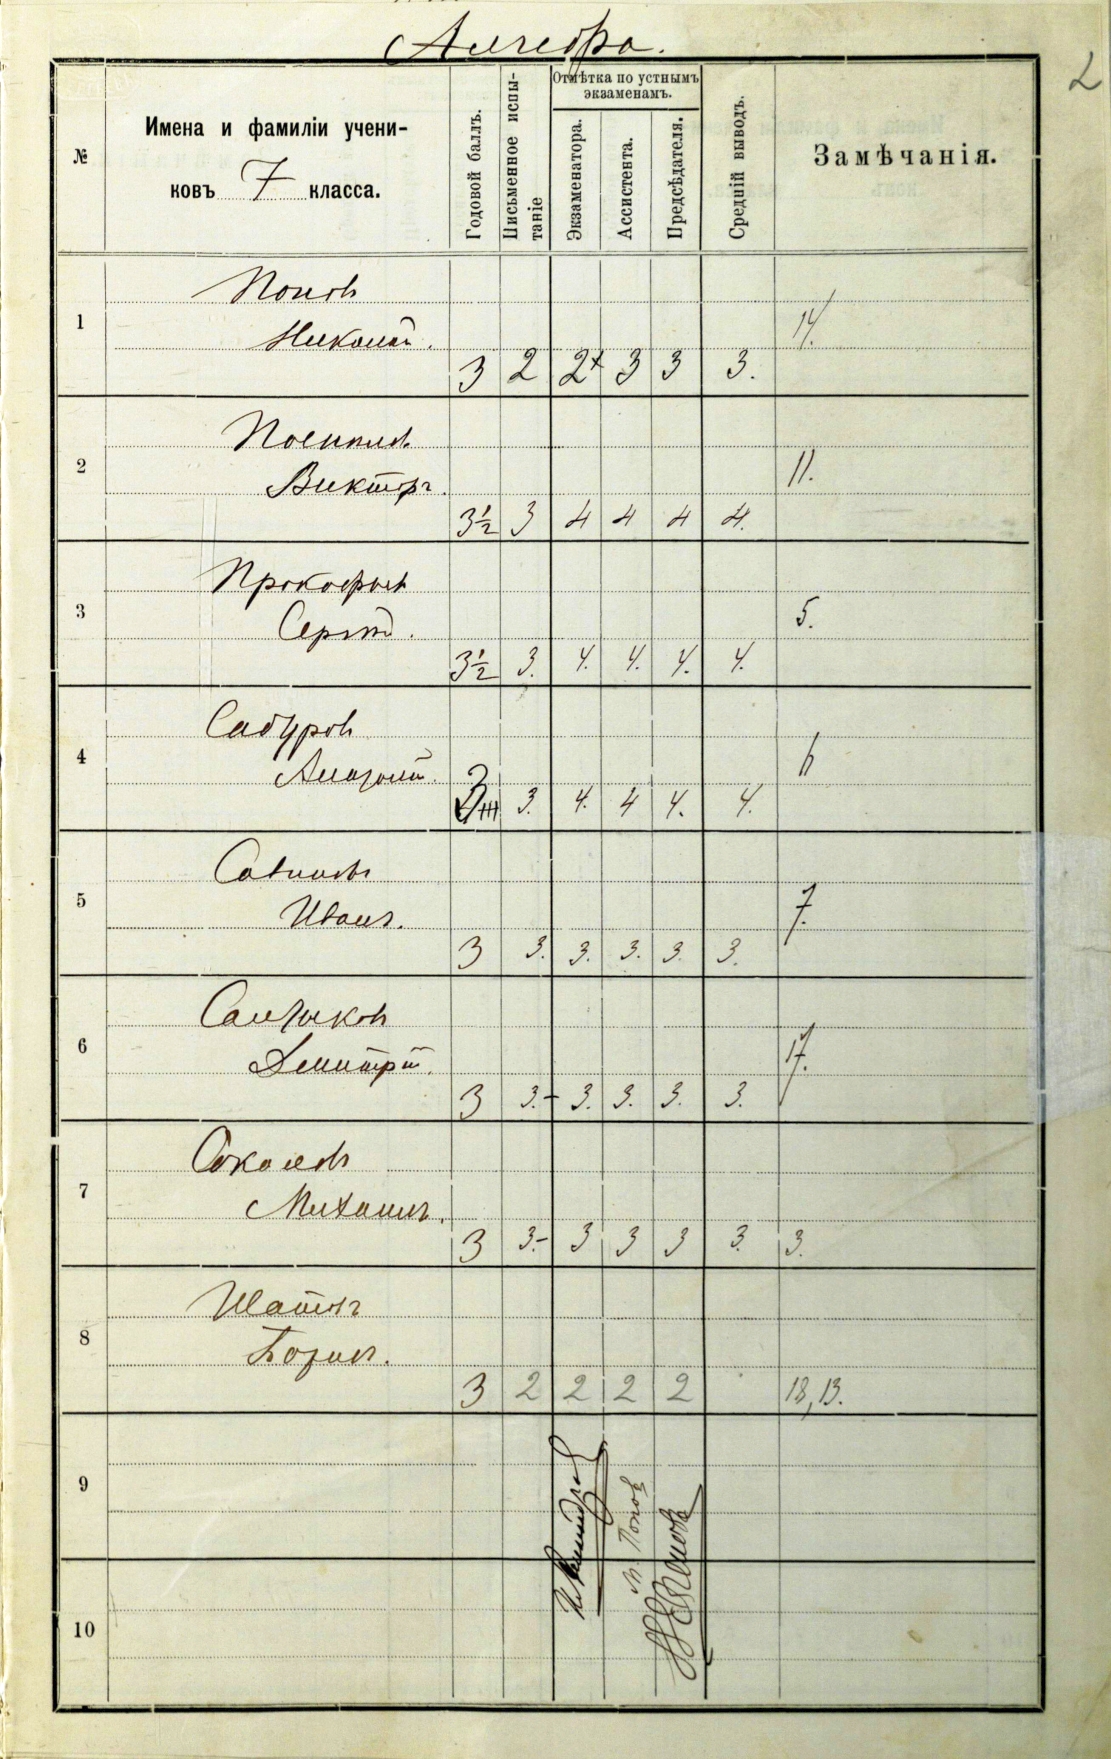 Алгебра.
2
№
Имена и фамиліи учени-
ковъ 7 класса.
Годовой баллъ.
Письменное испы-
таніе
Отмѣтка по устнымъ
экзаменамъ.
Экзаменатора.
Ассистента.
Предсѣдателя.
Средній выводъ.
Замѣчанія.
1
Поповъ
Николай.
3 2 2+ 3 3 3. 14.
2
Викторъ.
3½ 3 4 4 4 4. 11.
3
Прокофьевъ
Сергѣй.
3½ 3. 4. 4. 4. 4. 5.
4
Сабуровъ
3 3. 4. 4 4. 4.
5
Савиновъ
Иванъ.
3 3. 3. 3. 3. 3. 7.
6
Салтыковъ
Дмитрій.
3 3.- 3. 3. 3. 3. 17.
7
Соколовъ
Михаилъ.
3 3.- 3 3 3 3. 3.
8
Шатовъ
Борисъ.
3 2 2 2 2 18, 13.
9
Попов
10